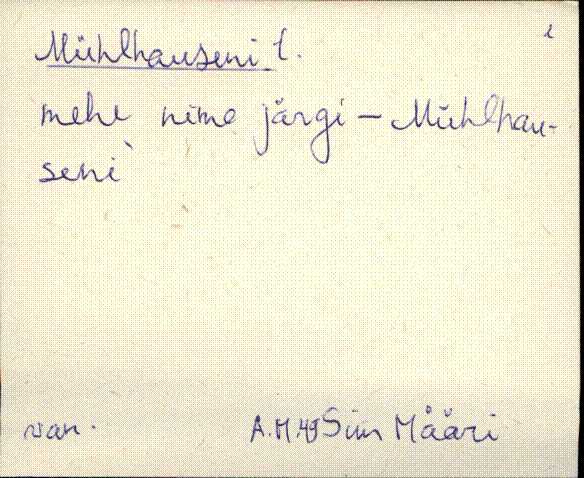 Mühlhauseni t.
mehe nime järgi – Mühlhau-
seni
van. A.M.49 Siim Määri